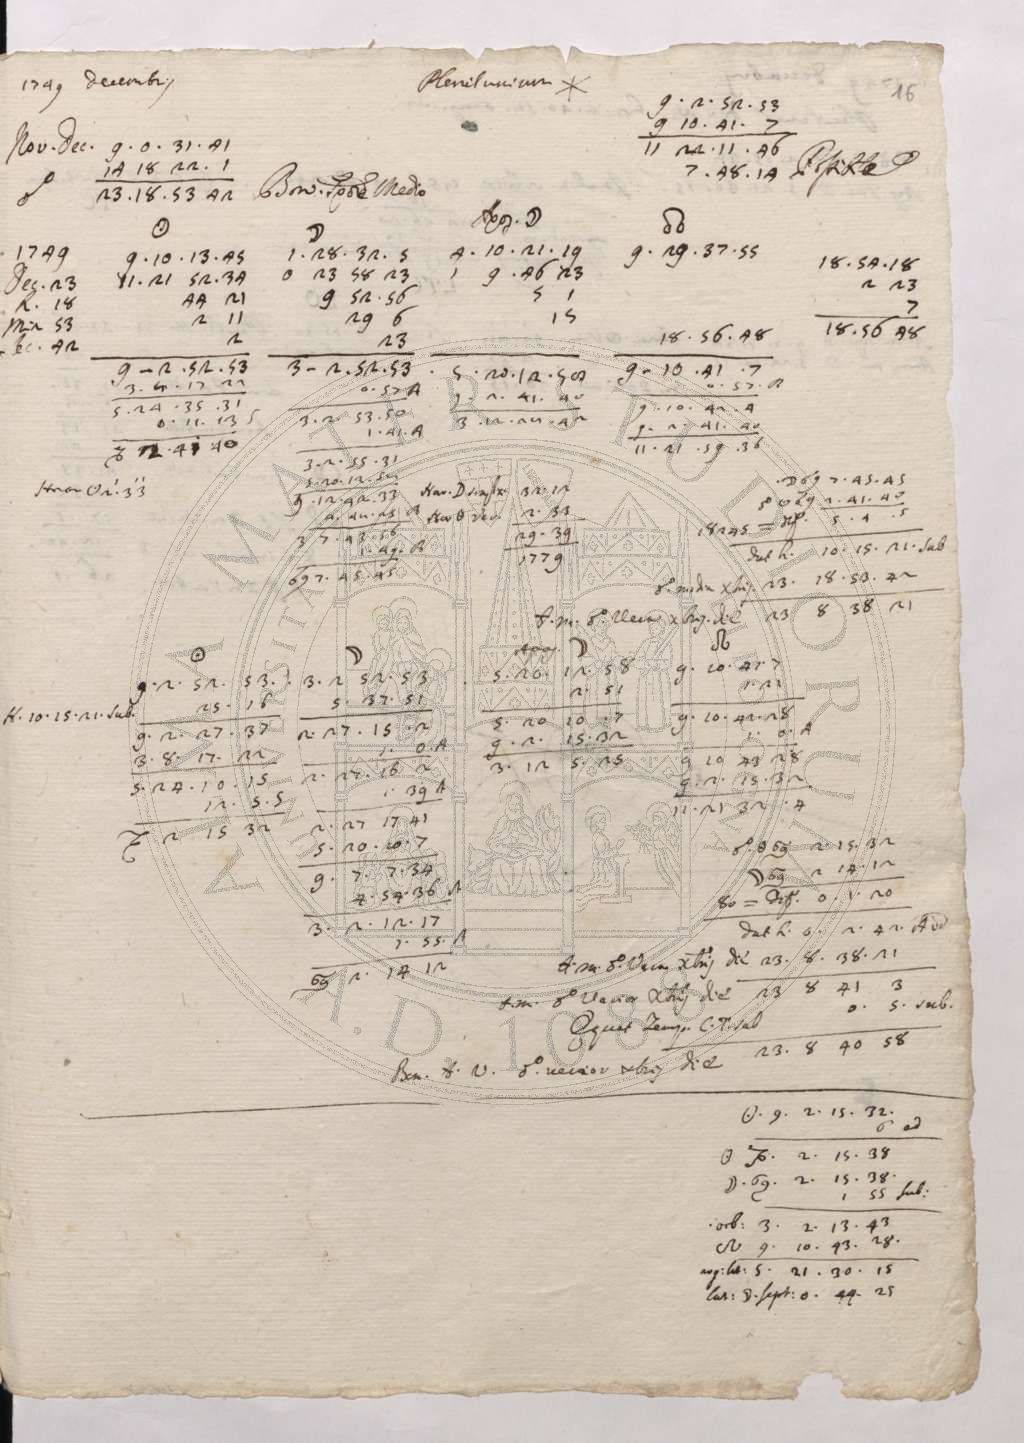 1749 decembrij Plenilunium 16
9 . 2 . 52 . 53
9 10 . 41 . 7
11 22 . 11 . 46
7 . 48 . 14
Nov. Dec. 9 . 0 . 31 . 41
14 18 22 . 1
☍ 23 . 18 . 53 42 Bon. Medio
☉ ☽ Apog. ☽ ☊
1749 9 . 10 . 13 . 45 1 . 28 . 32 . 5 4 . 10 . 21 . 19 9 . 29 . 37 . 55 18 . 54 . 18
Dec. 23 11 . 21 52 . 34 0 23 58 23 1 9 . 46 23 2 23
h. 18 44 21 9 52 . 56 5 1 7
Min 53 2 11 29 6 15 18 . 56 . 48 18 . 56 48
Sec. 42 2 23
9 - 2 . 52 . 53 3 - 2 . 52 . 53 . 5 . 20 . 12 . 58 9 - 10 . 41 . 7
3 . 8 . 17 22 0 . 57 A 9 . 2 . 41 . 40 0 . 57 . A
5 . 24 . 35 . 31 3 . 2 . 53 . 50 9 . 10 . 42 . 4
0 . 11 . 13 S 1 . 41 . A 9 . 2 . 41 . 40
2 . 41 40 3 . 2 . 55 . 31 11 . 21 . 59 . 36
5 . 20 . 12 . 58
Hor. ☉ 2 . 33 9 . 12 . 42 . 33 32 . 12
2 . 33
3 7 . 43 . 56 29 . 39
1 . 49 . A 1779
7 . 45 . 45
7 . 45 . 45
2 . 41 . 40
18245 = diff. 5 . 4 . 5
dat h. 10 . 15 . 21 . Sub
☍ media xbrij. 23 . 18 . 53 . 42
t. m. ☍. Vera xbrij. die 23 8 38 21
☉ ☽ Apog. ☽ ☊
9 . 2 . 52 . 53 . 3 . 2 52 . 53 . 5 . 20 . 12 . 58 9 . 10 . 41 . 7
H. 10 . 15 . 21 . Sub. 25 . 16 5 . 37 . 51 2 . 51 1 . 21
9 . 2 . 27 . 37 2 . 27 . 15 . 2 5 . 20 10 . 7 9 . 10 . 42 . 28
3 . 8 . 17 . 22 1 . 0 . A 9 . 2 . 15 . 32 1 . 0 . A
5 . 24 . 10 . 15 2 . 27 . 16 2 3 . 12 5 . 25 9 10 43 28
12 . 5 . S 1 . 39 A 9 . 2 . 15 . 32
2 15 32 2 . 27 17 41 11 . 21 32 . 4
5 . 20 . 10 . 7
9 . 7 . 7 . 34 2 . 15 . 32
4 . 54 . 36 A 2 14 . 12
3 . 2 . 12 . 17 80 = diff. 0 . 1 . 20
1 . 55 . A dat h. 0 . 2 . 42 . Add
2 . 14 12 t. m. ☍. Vera xbrij die 23 . 8 . 38 . 21
t. m. ☍ Verior xbrij die 23 8 41 3
Equat Temp. C. T. sub 0 . 5 . sub.
Bon. t. V. ☍. verior xbrij die 23 . 8 40 58
☉ . 9 . 2 . 15 . 32 .
6 ad
☉ . 2 . 15 . 38
☽ . 2 . 15 . 38 .
1 55 sub:
orb: 3 . 2 . 13 . 43
☊ 9 . 10 . 43 . 28 .
arg: lat: 5 . 21 . 30 . 15
Lat: ☽ . sept: 0 . 44 25